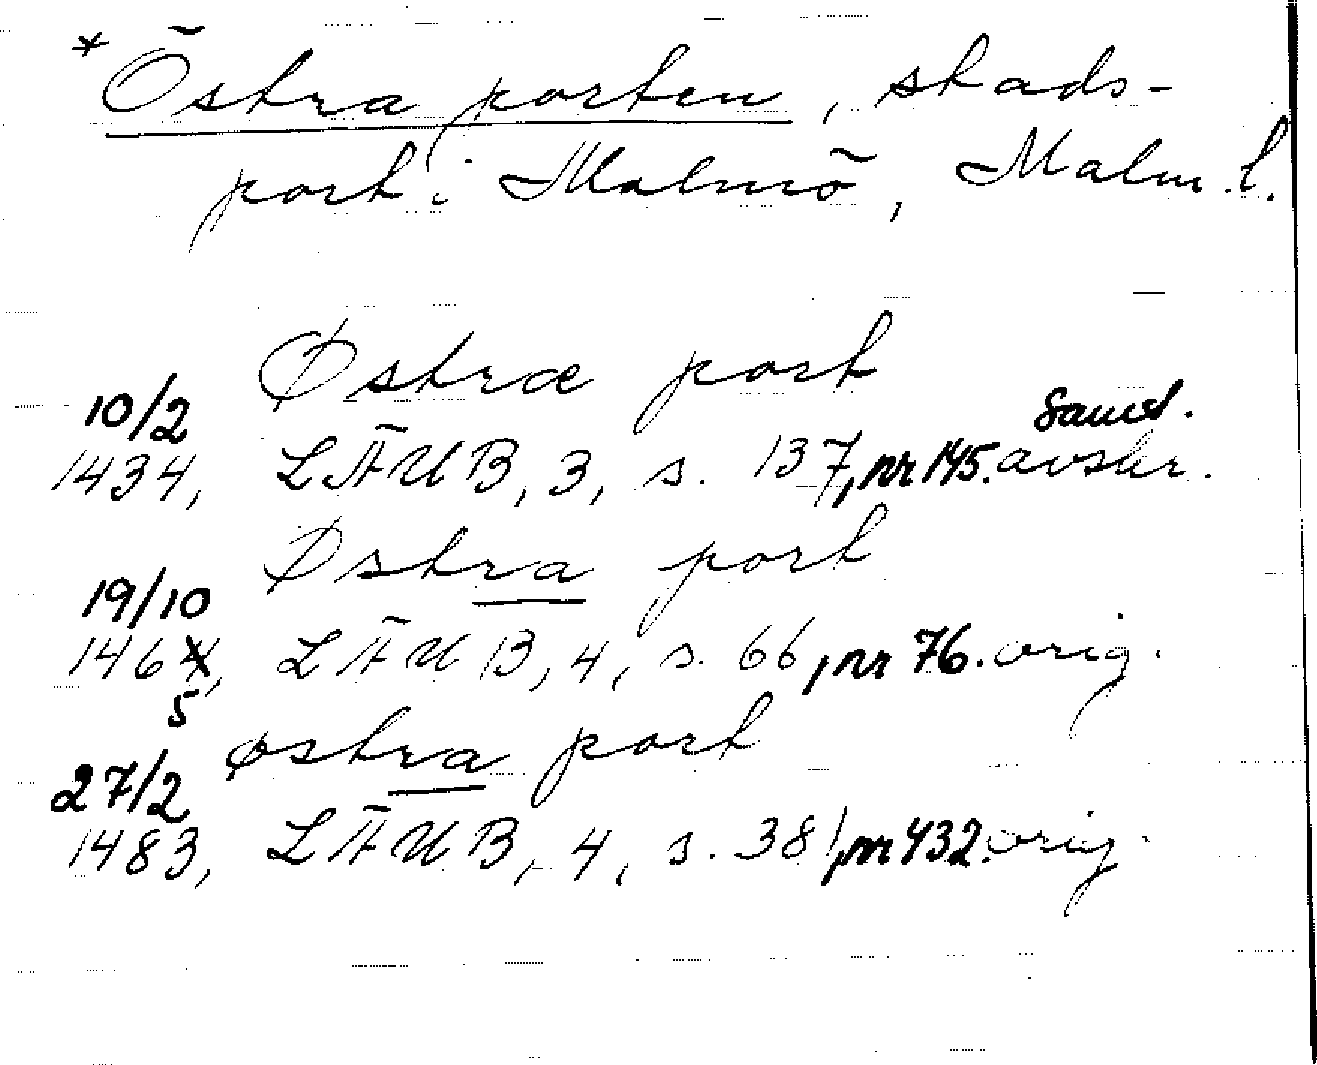 * Östra porten, stads-
port i Malmö, Malm. l.
Østræ port
10/2
samt.
1434, LÄUB, 3, s. 137, nr 145. avskr.
Østra port
19/10
1464, LÄUB, 4, s. 66, nr 76. orig.
5
østra port
27/2
1483, LÄUB, 4, s. 381, nr 432. orig.